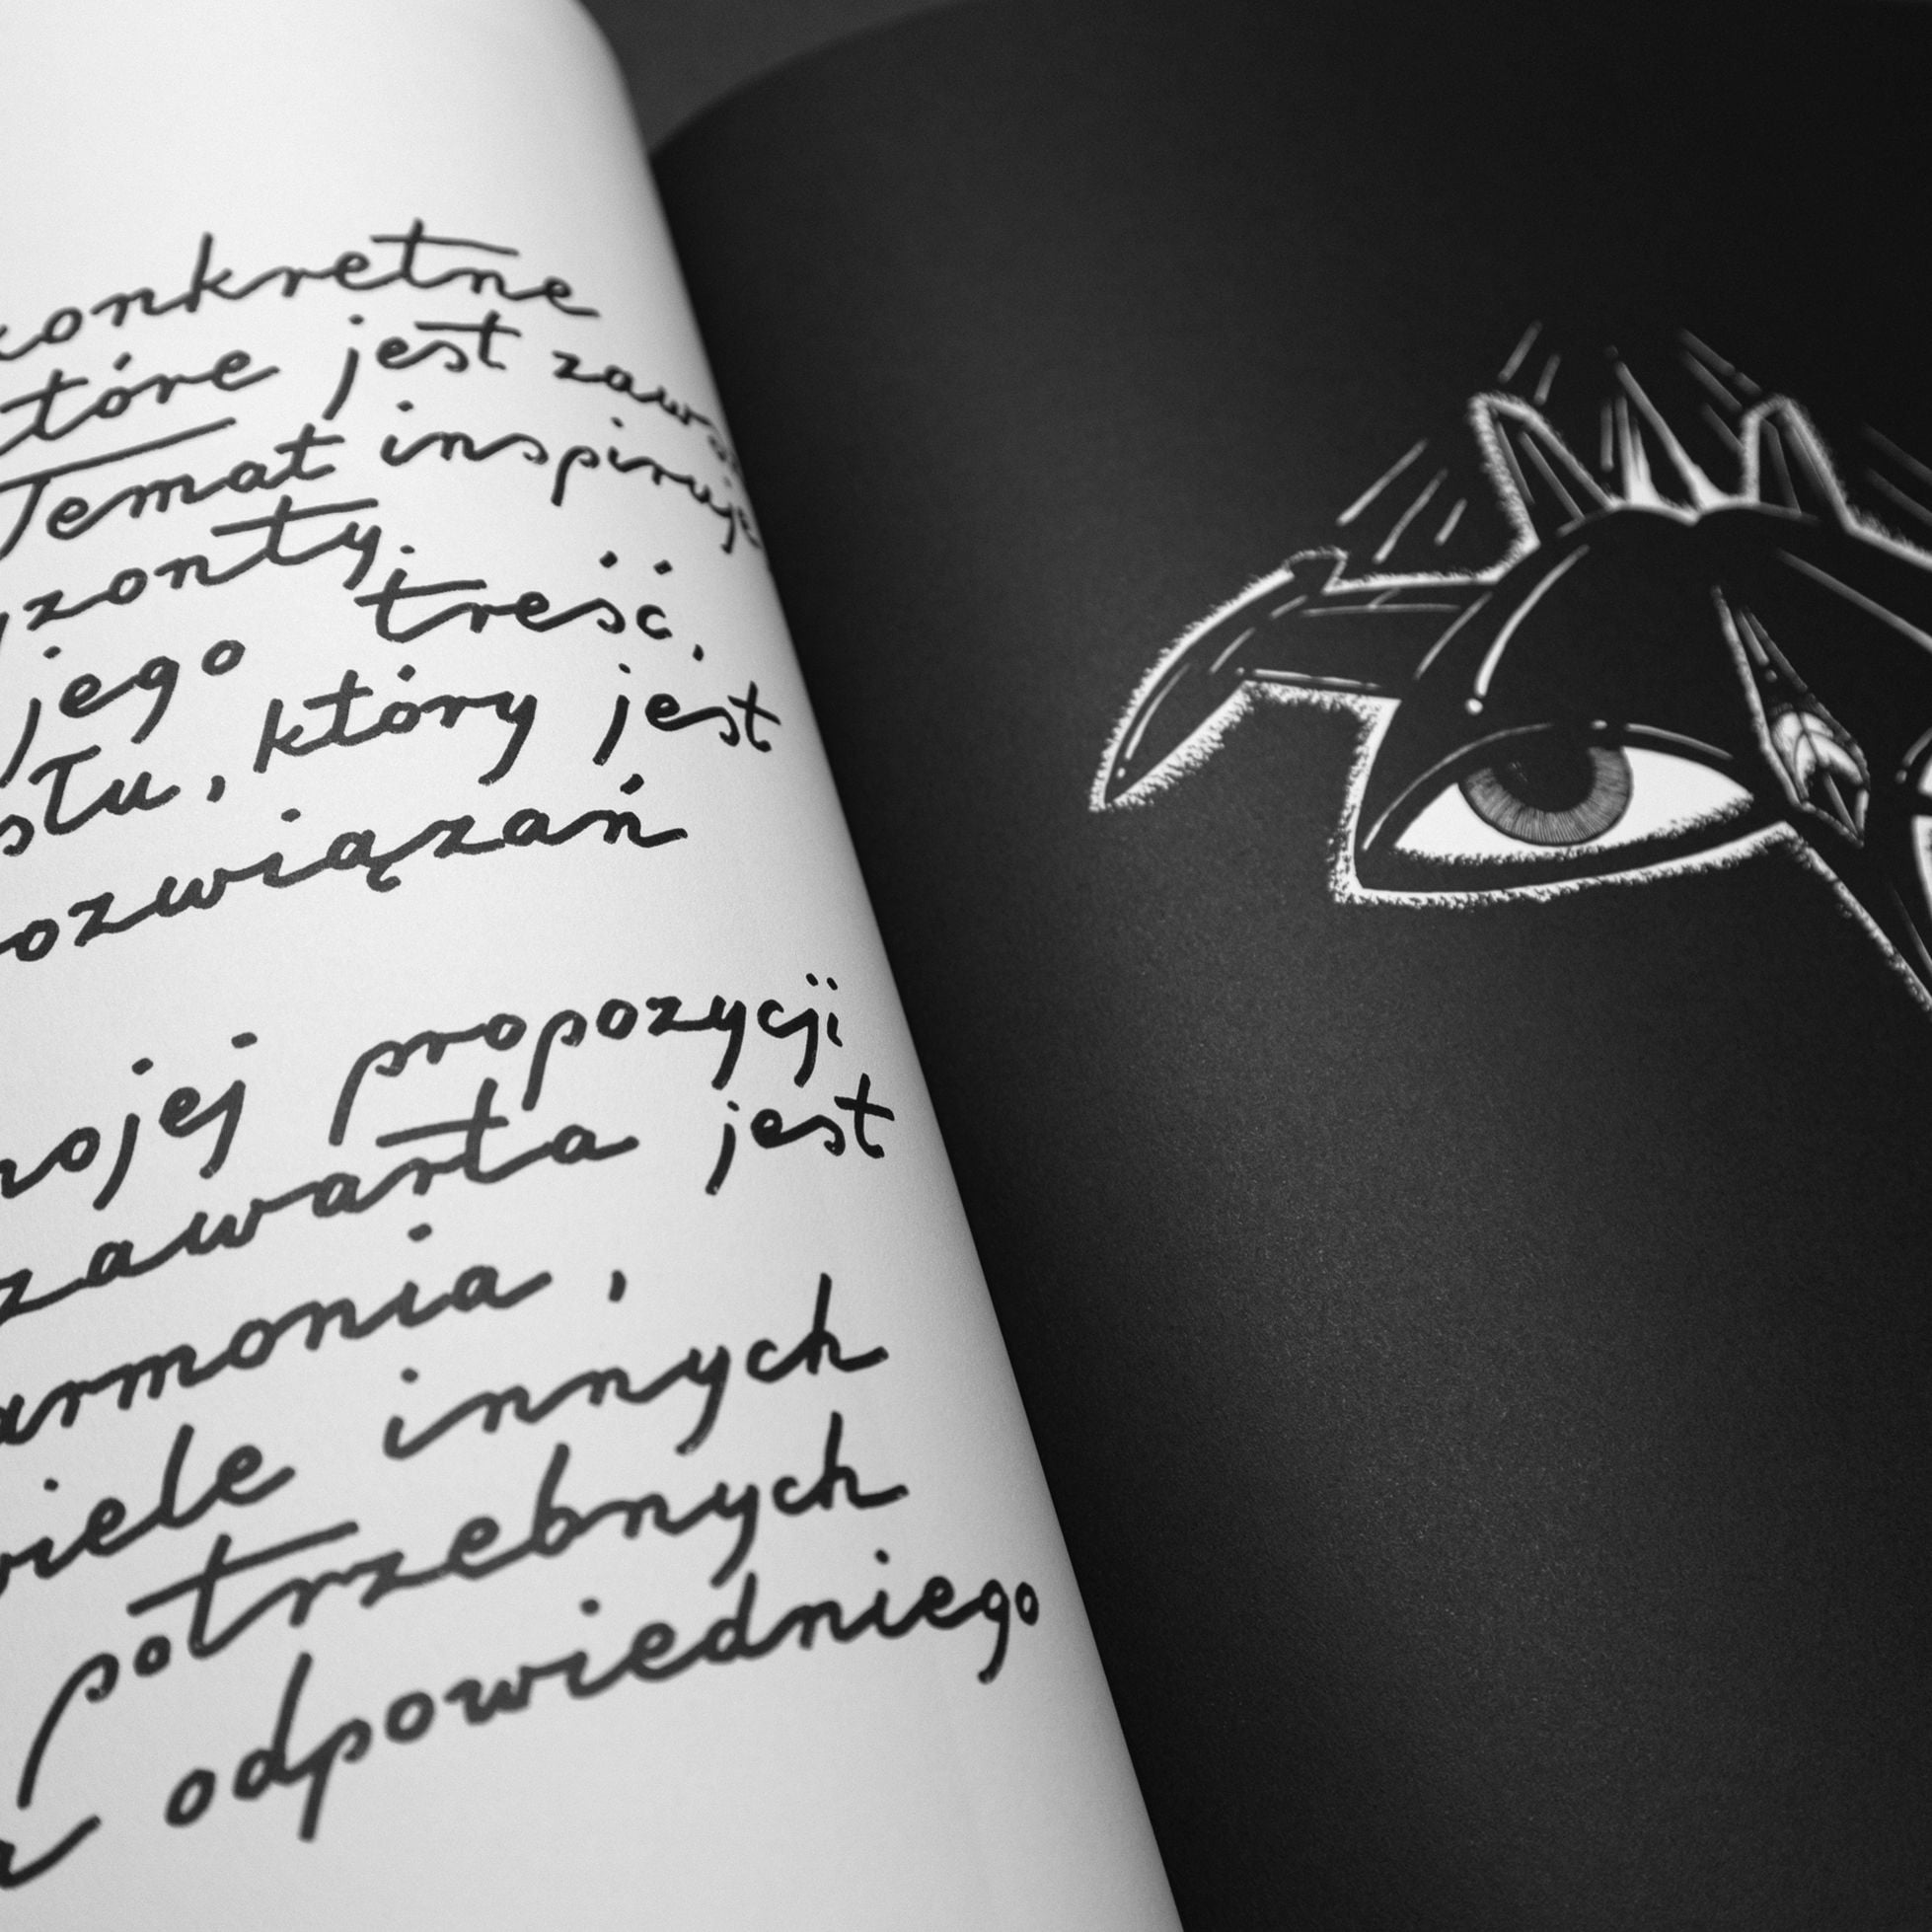 konkretne
które jest zawsze
Temat inspiruje
yzonty.
jego treść,
stu, który jest
rozwiązań
mojej propozycji
zawarta jest
armonia,
wiele innych
potrzebnych
odpowiedniego